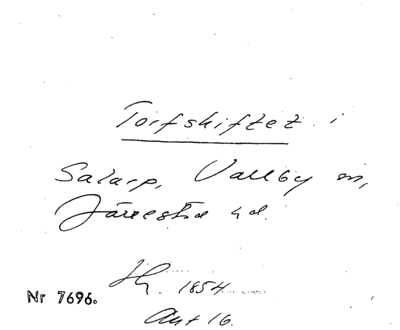 Torfskiftet i
Salarp, Vallby sn,
Järrestad hd.
Hr. 1854
Nr 7696.
Akt 16.